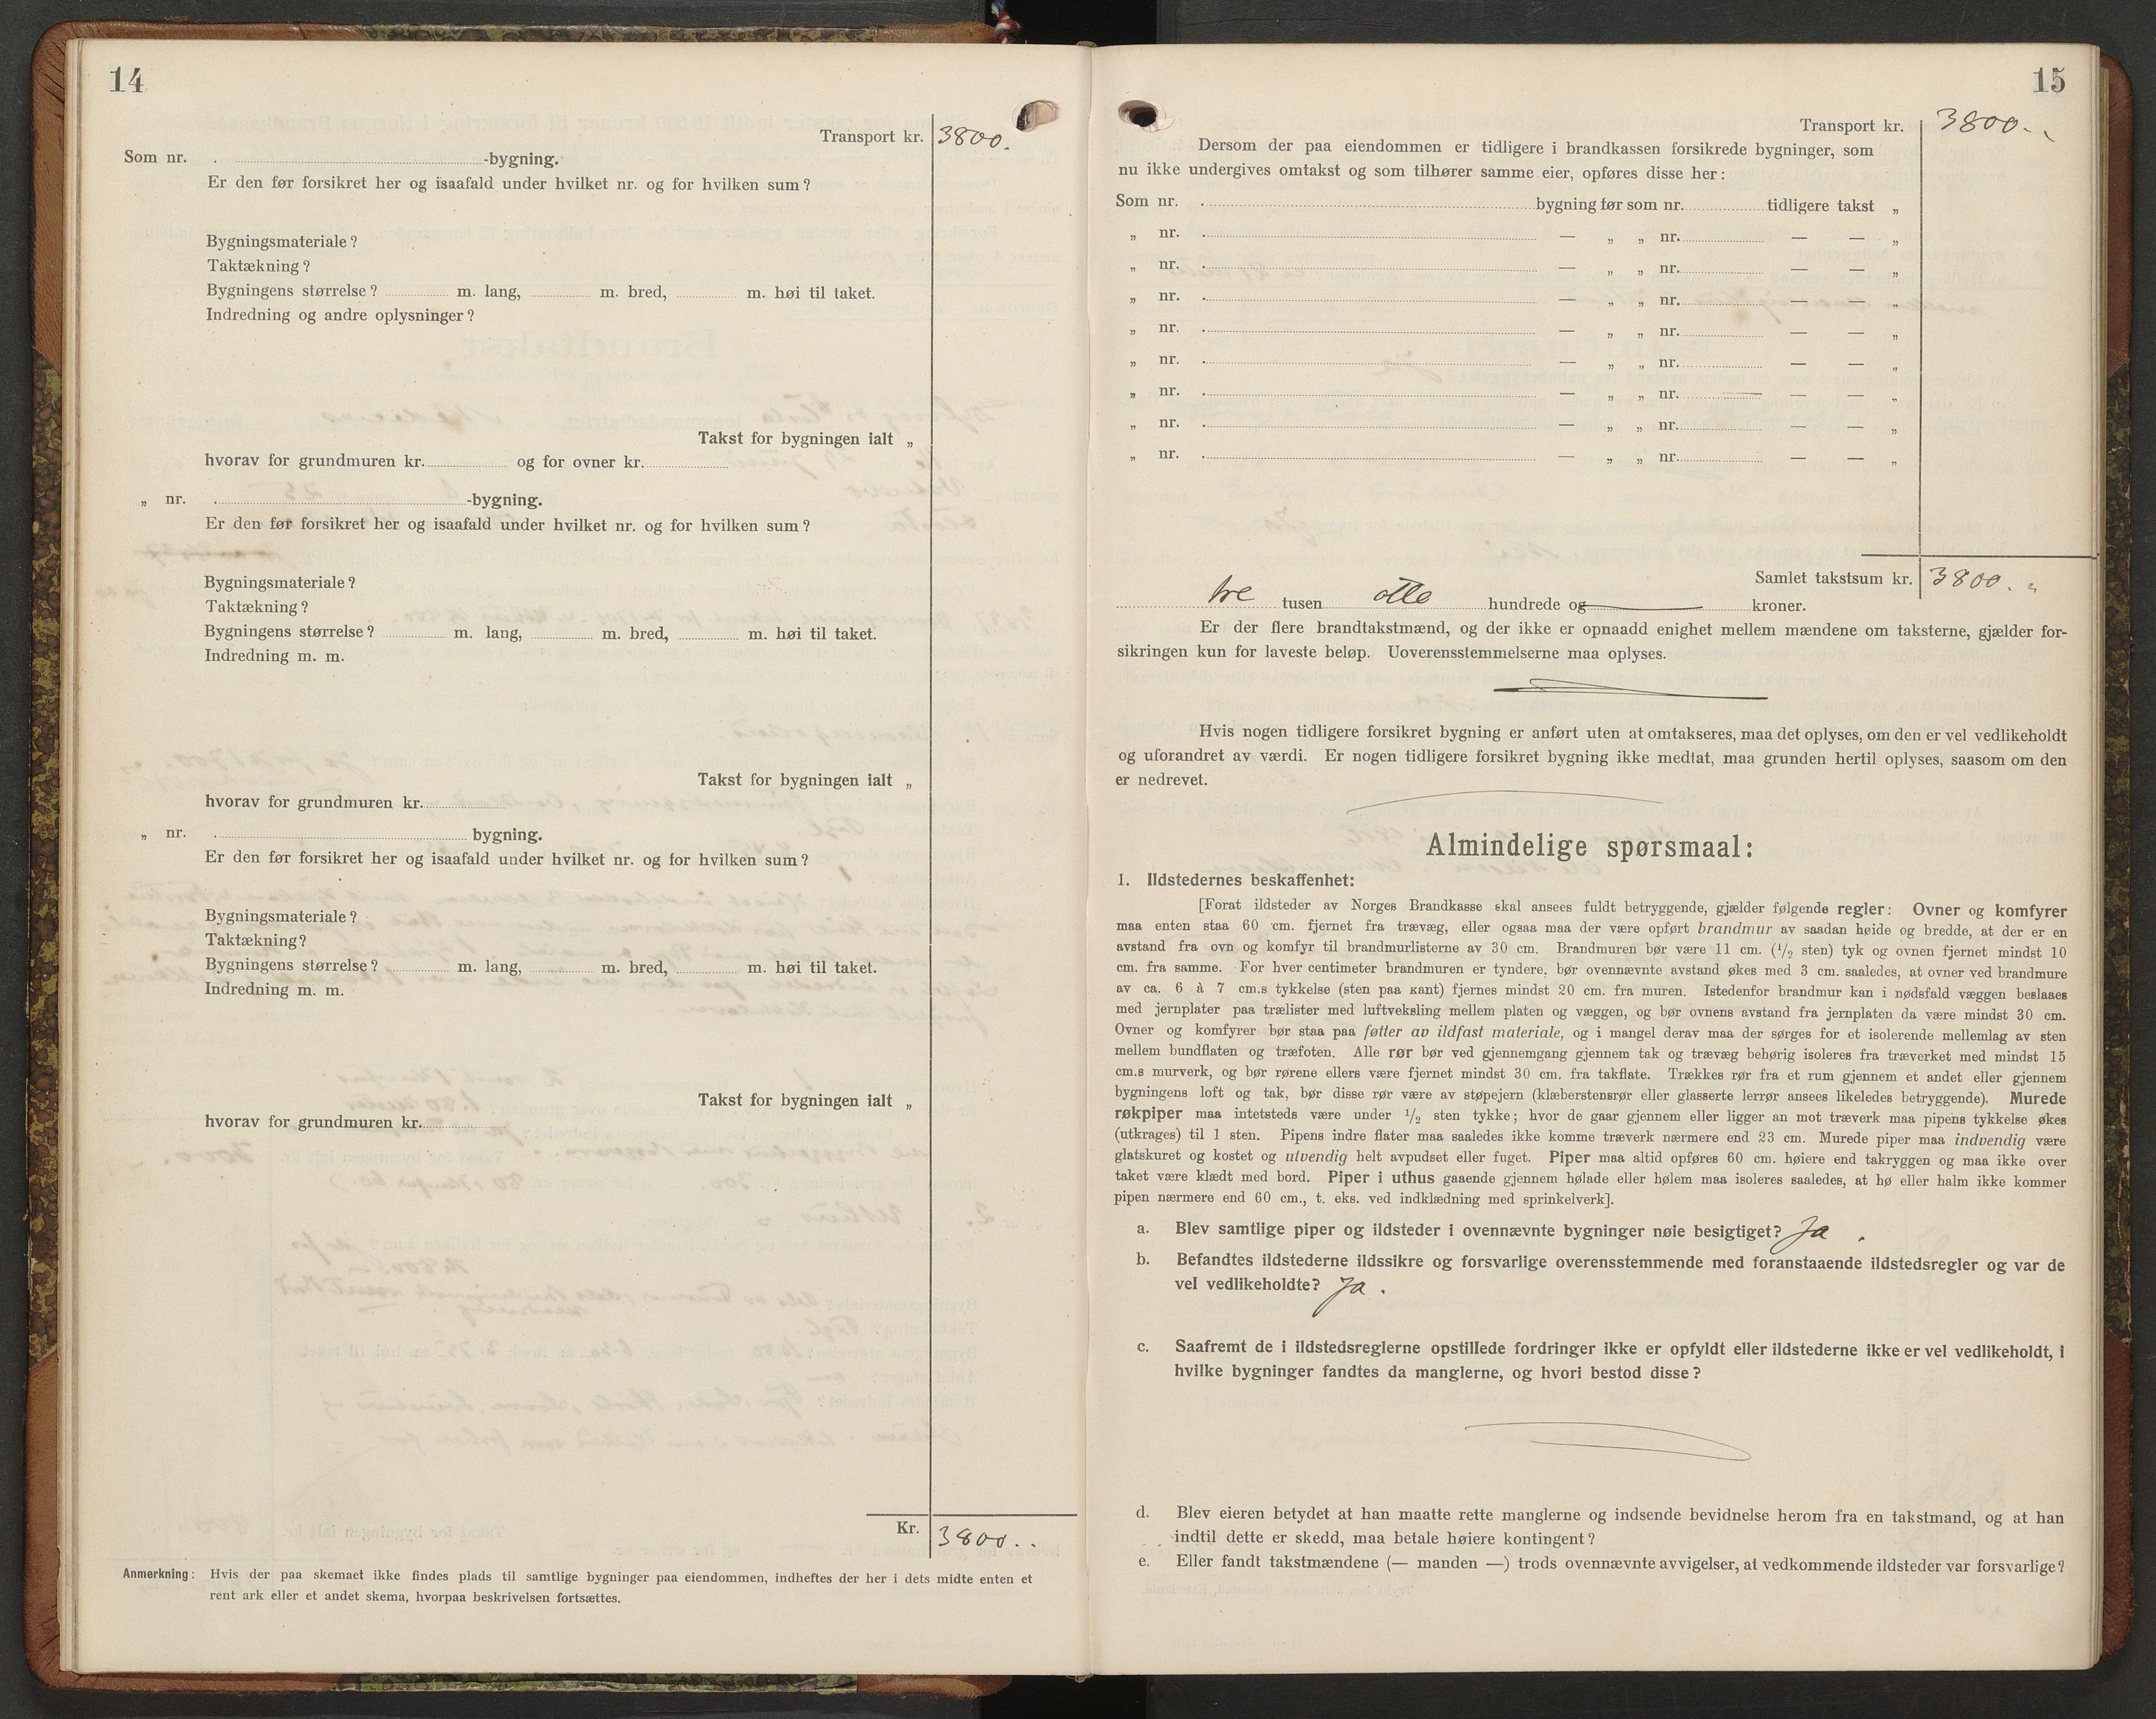 14
Transport kr. 3800.
Som nr. . -bygning.
Er den før forsikret her og isaafald under hvilket nr. og for hvilken sum?
Bygningsmateriale?
Taktækning?
Bygningens størrelse? m. lang, m. bred, m. høi til taket.
Indredning og andre oplysninger?
Takst for bygningen ialt „
hvorav for grundmuren kr. og for ovner kr.
„ nr. . -bygning.
Er den før forsikret her og isaafald under hvilket nr. og for hvilken sum?
Bygningsmateriale?
Taktækning?
Bygningens størrelse? m. lang, m. bred, m. høi til taket.
Indredning m. m.
Takst for bygningen ialt „
hvorav for grundmuren kr.
„ nr. . bygning.
Er den før forsikret her og isaafald under hvilket nr. og for hvilken sum?
Bygningsmateriale?
Taktækning?
Bygningens størrelse? m. lang, m. bred, m. høi til taket.
Indredning m. m.
Takst for bygningen ialt „
hvorav for grundmuren kr.
Kr. 3800..
Anmerkning: Hvis der paa skemaet ikke findes plads til samtlige bygninger paa eiendommen, indheftes der her i dets midte enten et
rent ark eller et andet skema, hvorpaa beskrivelsen fortsættes.
15
Transport kr. 3800. „
Dersom der paa eiendommen er tidligere i brandkassen forsikrede bygninger, som
nu ikke undergives omtakst og som tilhører samme eier, opføres disse her:
Som nr. . bygning før som nr. tidligere takst „
„ nr. . — „ „ nr. — — „
„ nr. . — „ „ nr. — — „
„ nr. . — „ „ nr. — — „
„ nr. . — „ „ nr. — — „
„ nr. . — „ „ nr. — — „
„ nr. . — „ „ nr. — — „
„ nr. . — „ „ nr. — — „
„ nr. . — „ „ nr. — — „
Samlet takstsum kr. 3800. „
tre tusen otte hundrede og kroner.
Er der flere brandtakstmænd, og der ikke er opnaadd enighet mellem mændene om taksterne, gjælder for-
sikringen kun for laveste beløp. Uoverensstemmelserne maa oplyses.
Hvis nogen tidligere forsikret bygning er anført uten at omtakseres, maa det oplyses, om den er vel vedlikeholdt
og uforandret av værdi. Er nogen tidligere forsikret bygning ikke medtat, maa grunden hertil oplyses, saasom om den
er nedrevet.
Almindelige spørsmaal:
1. Ildstedernes beskaffenhet:
[Forat ildsteder av Norges Brandkasse skal ansees fuldt betryggende, gjælder følgende regler: Ovner og komfyrer
maa enten staa 60 cm. fjernet fra trævæg, eller ogsaa maa der være opført brandmur av saadan høide og bredde, at der er en
avstand fra ovn og komfyr til brandmurlisterne av 30 cm. Brandmuren bør være 11 cm. (1/2 sten) tyk og ovnen fjernet mindst 10
cm. fra samme. For hver centimeter brandmuren er tyndere, bør ovennævnte avstand økes med 3 cm. saaledes, at ovner ved brandmure
av ca. 6 à 7 cm.s tykkelse (sten paa kant) fjernes mindst 20 cm. fra muren. Istedenfor brandmur kan i nødsfald væggen beslaaes
med jernplater paa trælister med luftveksling mellem platen og væggen, og bør ovnens avstand fra jernplaten da være mindst 30 cm.
Ovner og komfyrer bør staa paa føtter av ildfast materiale, og i mangel derav maa der sørges for et isolerende mellemlag av sten
mellem bundflaten og træfoten. Alle rør bør ved gjennemgang gjennem tak og trævæg behørig isoleres fra træverket med mindst 15
cm.s murverk, og bør rørene ellers være fjernet mindst 30 cm. fra takflate. Trækkes rør fra et rum gjennem et andet eller gjennem
bygningens loft og tak, bør disse rør være av støpejern (klæberstensrør eller glasserte lerrør ansees likeledes betryggende). Murede
røkpiper maa intetsteds være under 1/2 sten tykke; hvor de gaar gjennem eller ligger an mot træverk maa pipens tykkelse økes
(utkrages) til 1 sten. Pipens indre flater maa saaledes ikke komme træverk nærmere end 23 cm. Murede piper maa indvendig være
glatskuret og kostet og utvendig helt avpudset eller fuget. Piper maa altid opføres 60 cm. høiere end takryggen og maa ikke over
taket være klædt med bord. Piper i uthus gaaende gjennem hølade eller hølem maa isoleres saaledes, at hø eller halm ikke kommer
pipen nærmere end 60 cm., t. eks. ved indklædning med sprinkelverk].
a. Blev samtlige piper og ildsteder i ovennævnte bygninger nøie besigtiget? Ja .
b. Befandtes ildstederne ildssikre og forsvarlige overensstemmende med foranstaaende ildstedsregler og var de
vel vedlikeholdte? Ja .
c. Saafremt de i ildstedsreglerne opstillede fordringer ikke er opfyldt eller ildstederne ikke er vel vedlikeholdt, i
hvilke bygninger fandtes da manglerne, og hvori bestod disse?
d. Blev eieren betydet at han maatte rette manglerne og indsende bevidnelse herom fra en takstmand, og at han
indtil dette er skedd, maa betale høiere kontingent?
e. Eller fandt takstmændene (— manden —) trods ovennævnte avvigelser, at vedkommende ildsteder var forsvarlige?